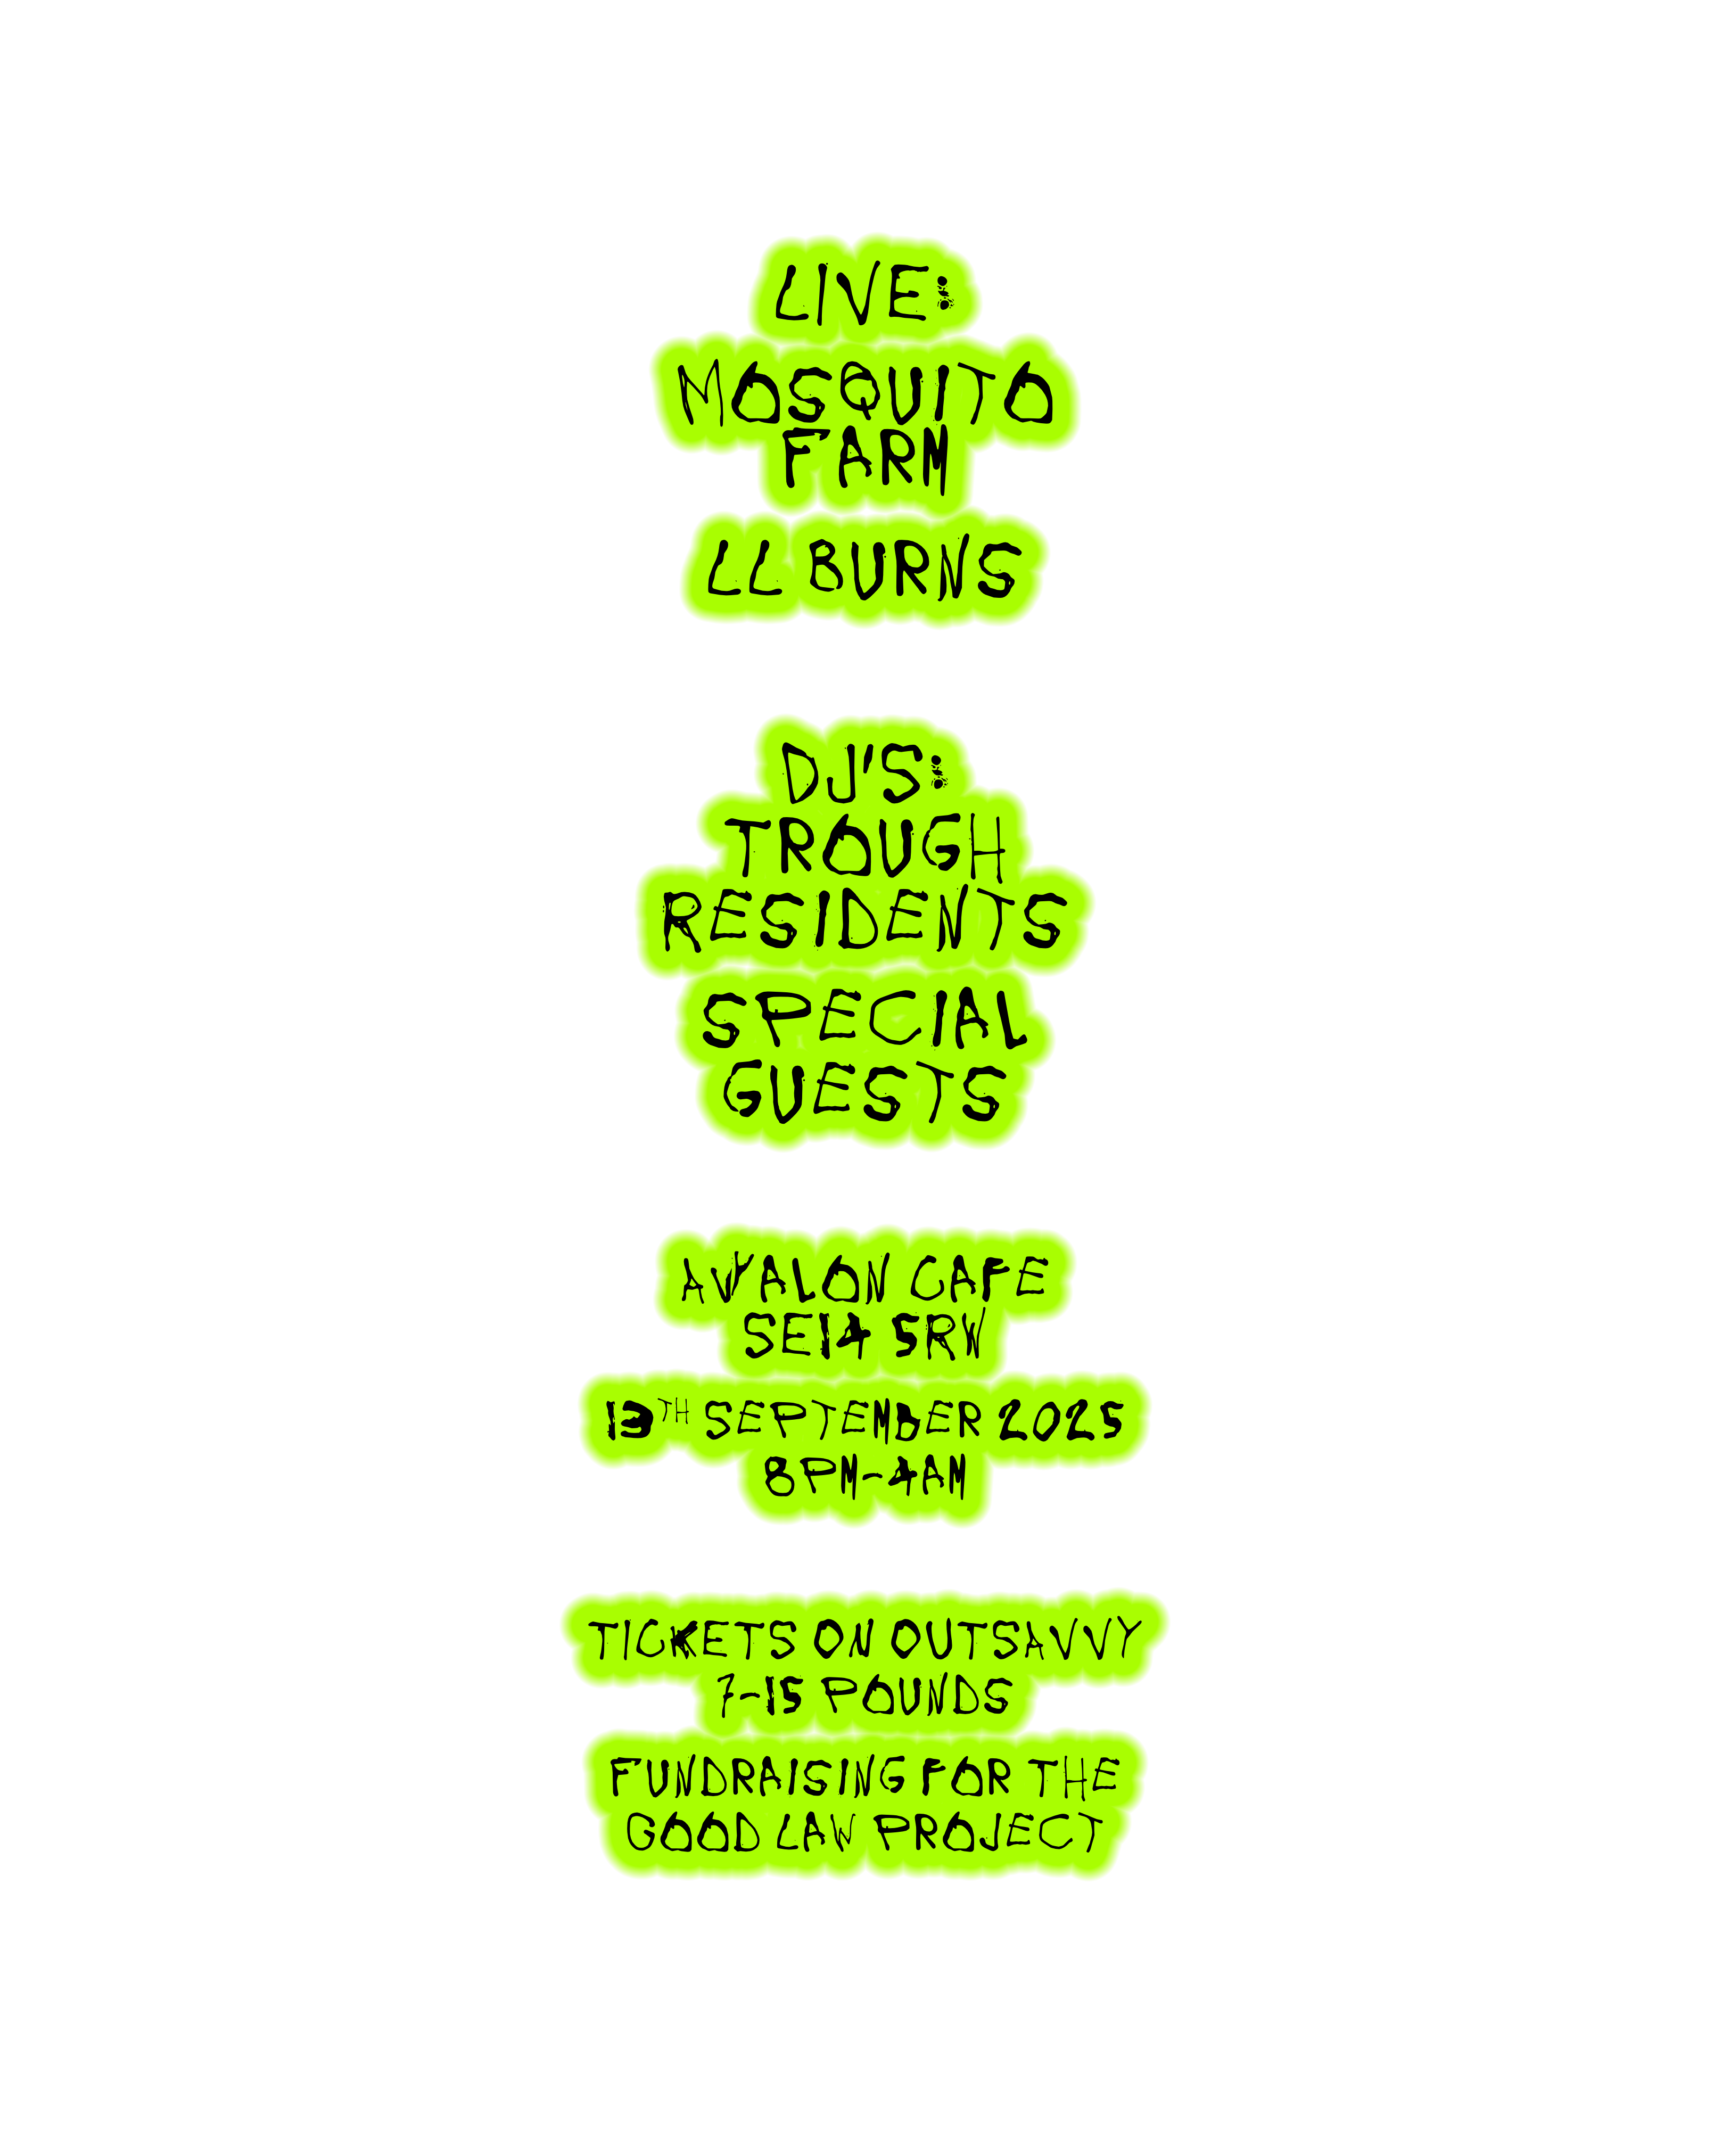 LIVE:
MOSQUITO
FARM
LL BURNS
DJ'S:
TROUGH
RESIDENTS
SPECIAL
GUESTS
AVALON CAFE
SE14 5RW
13TH SEPTEMBER 2025
8PM-4AM
TICKETS ON OUTSAVVY
7-15 POUNDS
FUNDRAISING FOR THE
GOOD LAW PROJECT